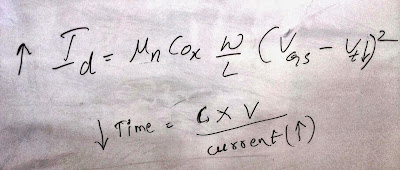 ↑ I_d = μ_n C_ox W/L (V_gs - V_t↓)²
↓ Time = C × V / current (↑)